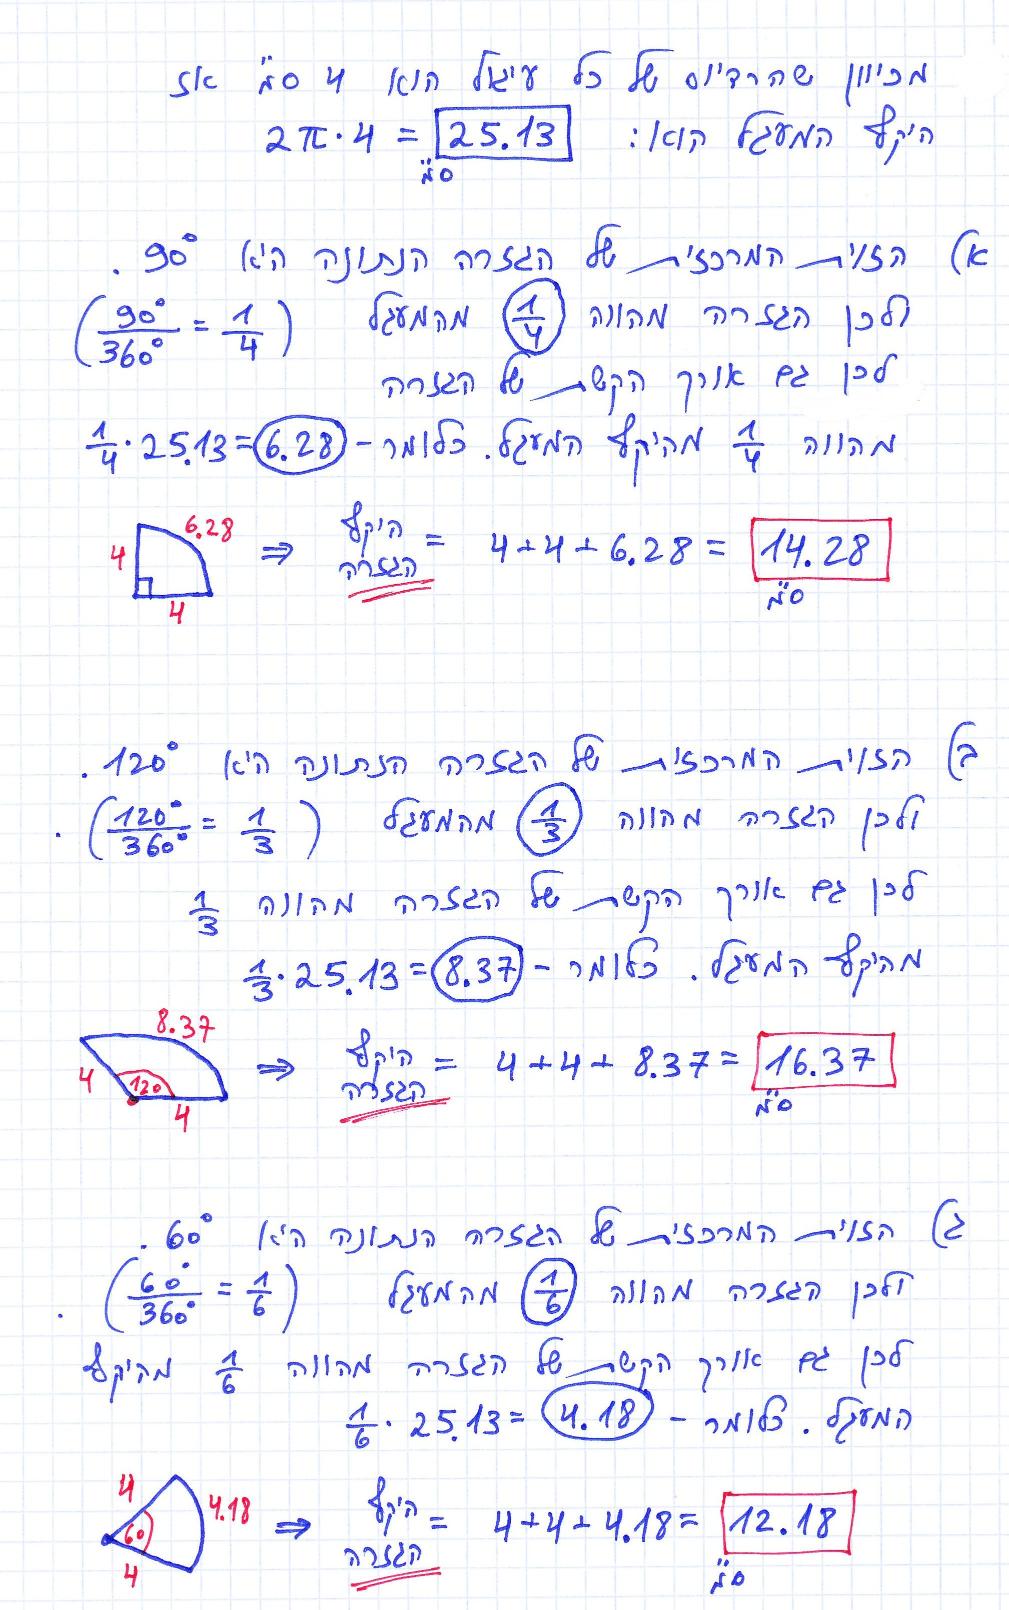 מכיוון שהרדיוס של כל עיגול הוא 4 ס"מ אז
היקף המעגל הוא: 2π·4 = 25.13
ס"מ
א) הזוית המרכזית של הגזרה הנתונה היא 90°.
ולכן הגזרה מהווה 1/4 מהמעגל (90°/360° = 1/4)
לכן גם אורך הקשת של הגזרה
מהווה 1/4 מהיקף המעגל. כלומר - 1/4 · 25.13 = 6.28
6.28
4
4
⇒ היקף הגזרה = 4+4+6.28 = 14.28
ס"מ
ב) הזוית המרכזית של הגזרה הנתונה היא 120°.
ולכן הגזרה מהווה 1/3 מהמעגל (120°/360° = 1/3).
לכן גם אורך הקשת של הגזרה מהווה 1/3
מהיקף המעגל. כלומר - 1/3 · 25.13 = 8.37
8.37
4
120
4
⇒ היקף הגזרה = 4+4+8.37 = 16.37
ס"מ
ג) הזוית המרכזית של הגזרה הנתונה היא 60°.
ולכן הגזרה מהווה 1/6 מהמעגל (60°/360° = 1/6).
לכן גם אורך הקשת של הגזרה מהווה 1/6 מהיקף
המעגל. כלומר - 1/6 · 25.13 = 4.18
4
4.18
60
4
⇒ היקף הגזרה = 4+4+4.18 = 12.18
ס"מ